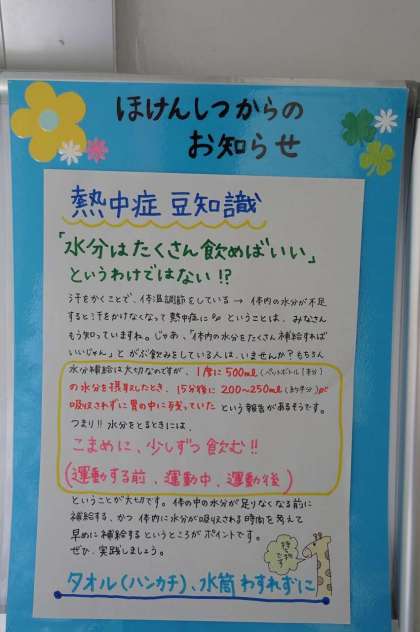 ほけんしつからの
お知らせ
熱中症 豆知識
「水分はたくさん飲めばいい」
というわけではない!?
汗をかくことで、体温調節をしている → 体内の水分が不足
すると汗をかけなくなって熱中症に ということは、みなさん
もう知っていますね。じゃあ、「体内の水分をたくさん補給すれば
いいじゃん」と がぶ飲みをしている人は、いませんか?もちろん
水分補給は大切なのですが、1度に500ml(ペットボトル1本分)
の水分を摂取したとき、15分後に200~250ml(約半分)が
吸収されずに胃の中に残っていた という報告があるそうです。
つまり!! 水分をとるときには、
こまめに、少しずつ飲む!!
(運動する前、運動中、運動後)
ということが大切です。体の中の水分が足りなくなる前に
補給する、かつ 体内に水分が吸収される時間を考えて
早めに補給するというところがポイントです。
ぜひ、実践しましょう。
持ち物
です
タオル(ハンカチ)、水筒 わすれずに